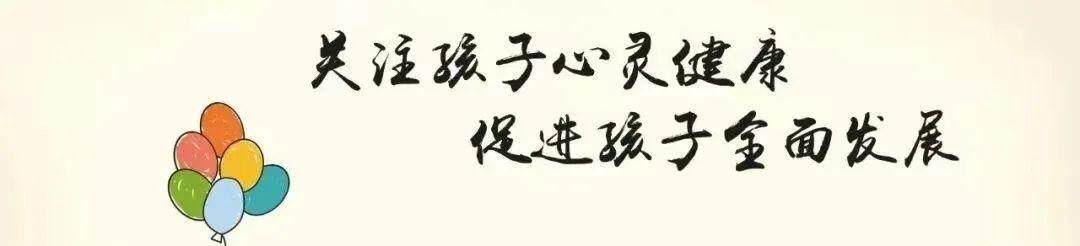 关注孩子心灵健康
促进孩子全面发展